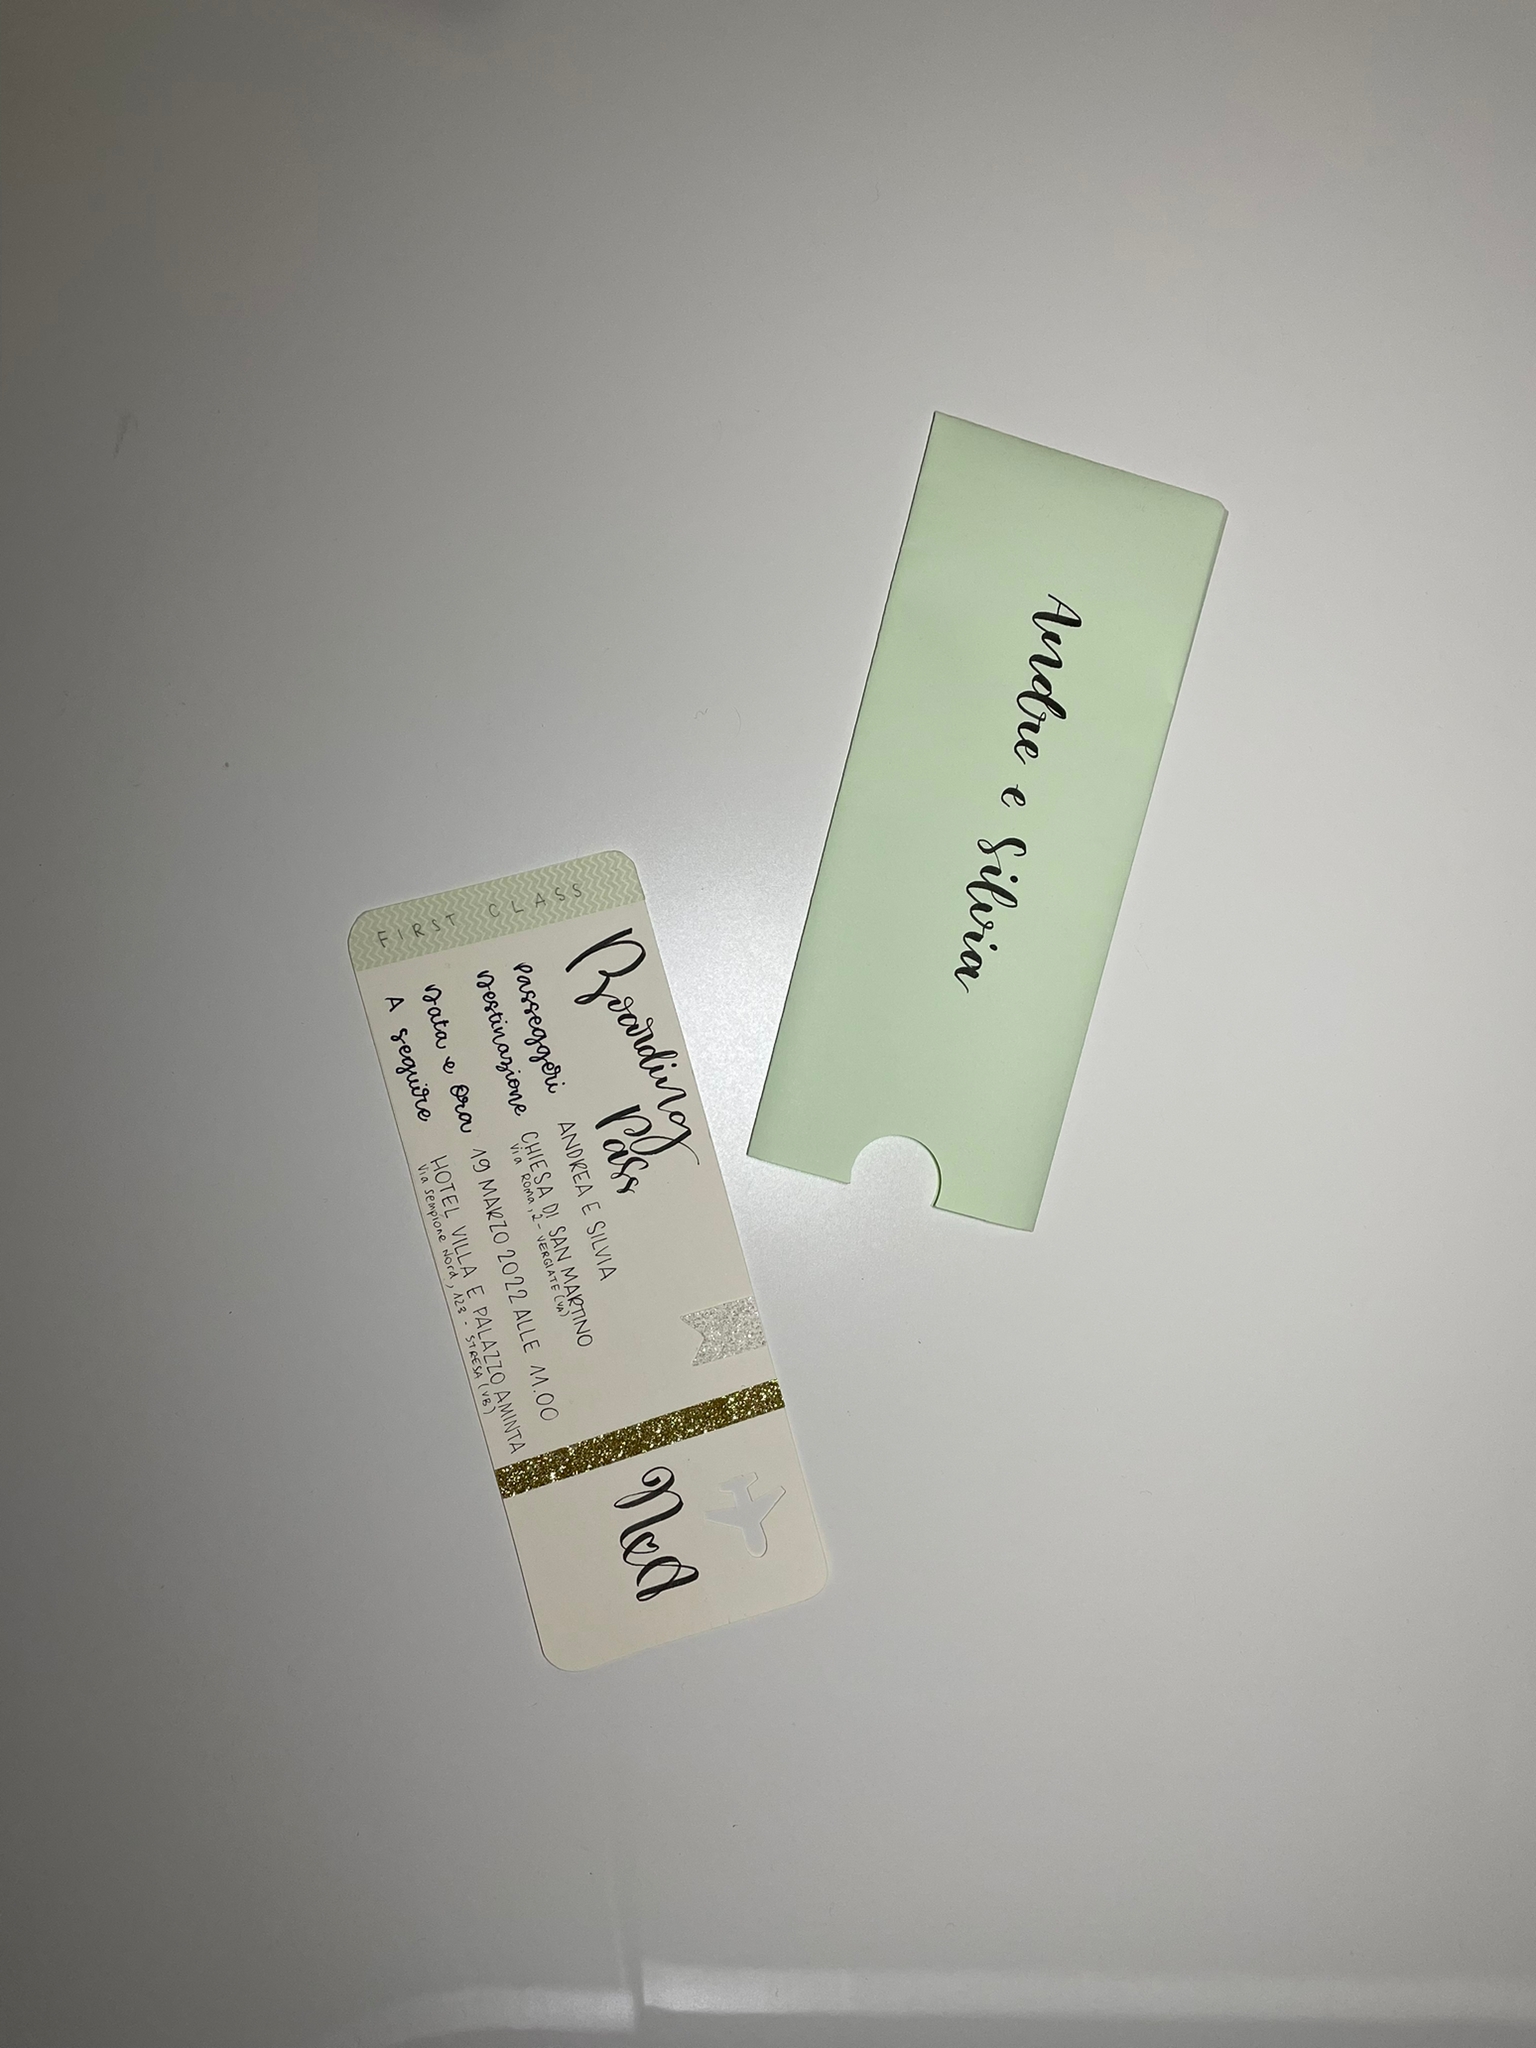 Andre e Silvia
FIRST CLASS
Boarding
Pass
Passeggeri ANDREA E SILVIA
Destinazione CHIESA DI SAN MARTINO
Via ROMA, 2 - VERGIATE (VA)
Data e Ora 19 MARZO 2022 ALLE 11.00
A seguire HOTEL VILLA E PALAZZO AMINTA
Via Sempione Nord, 123 - STRESA (VB)